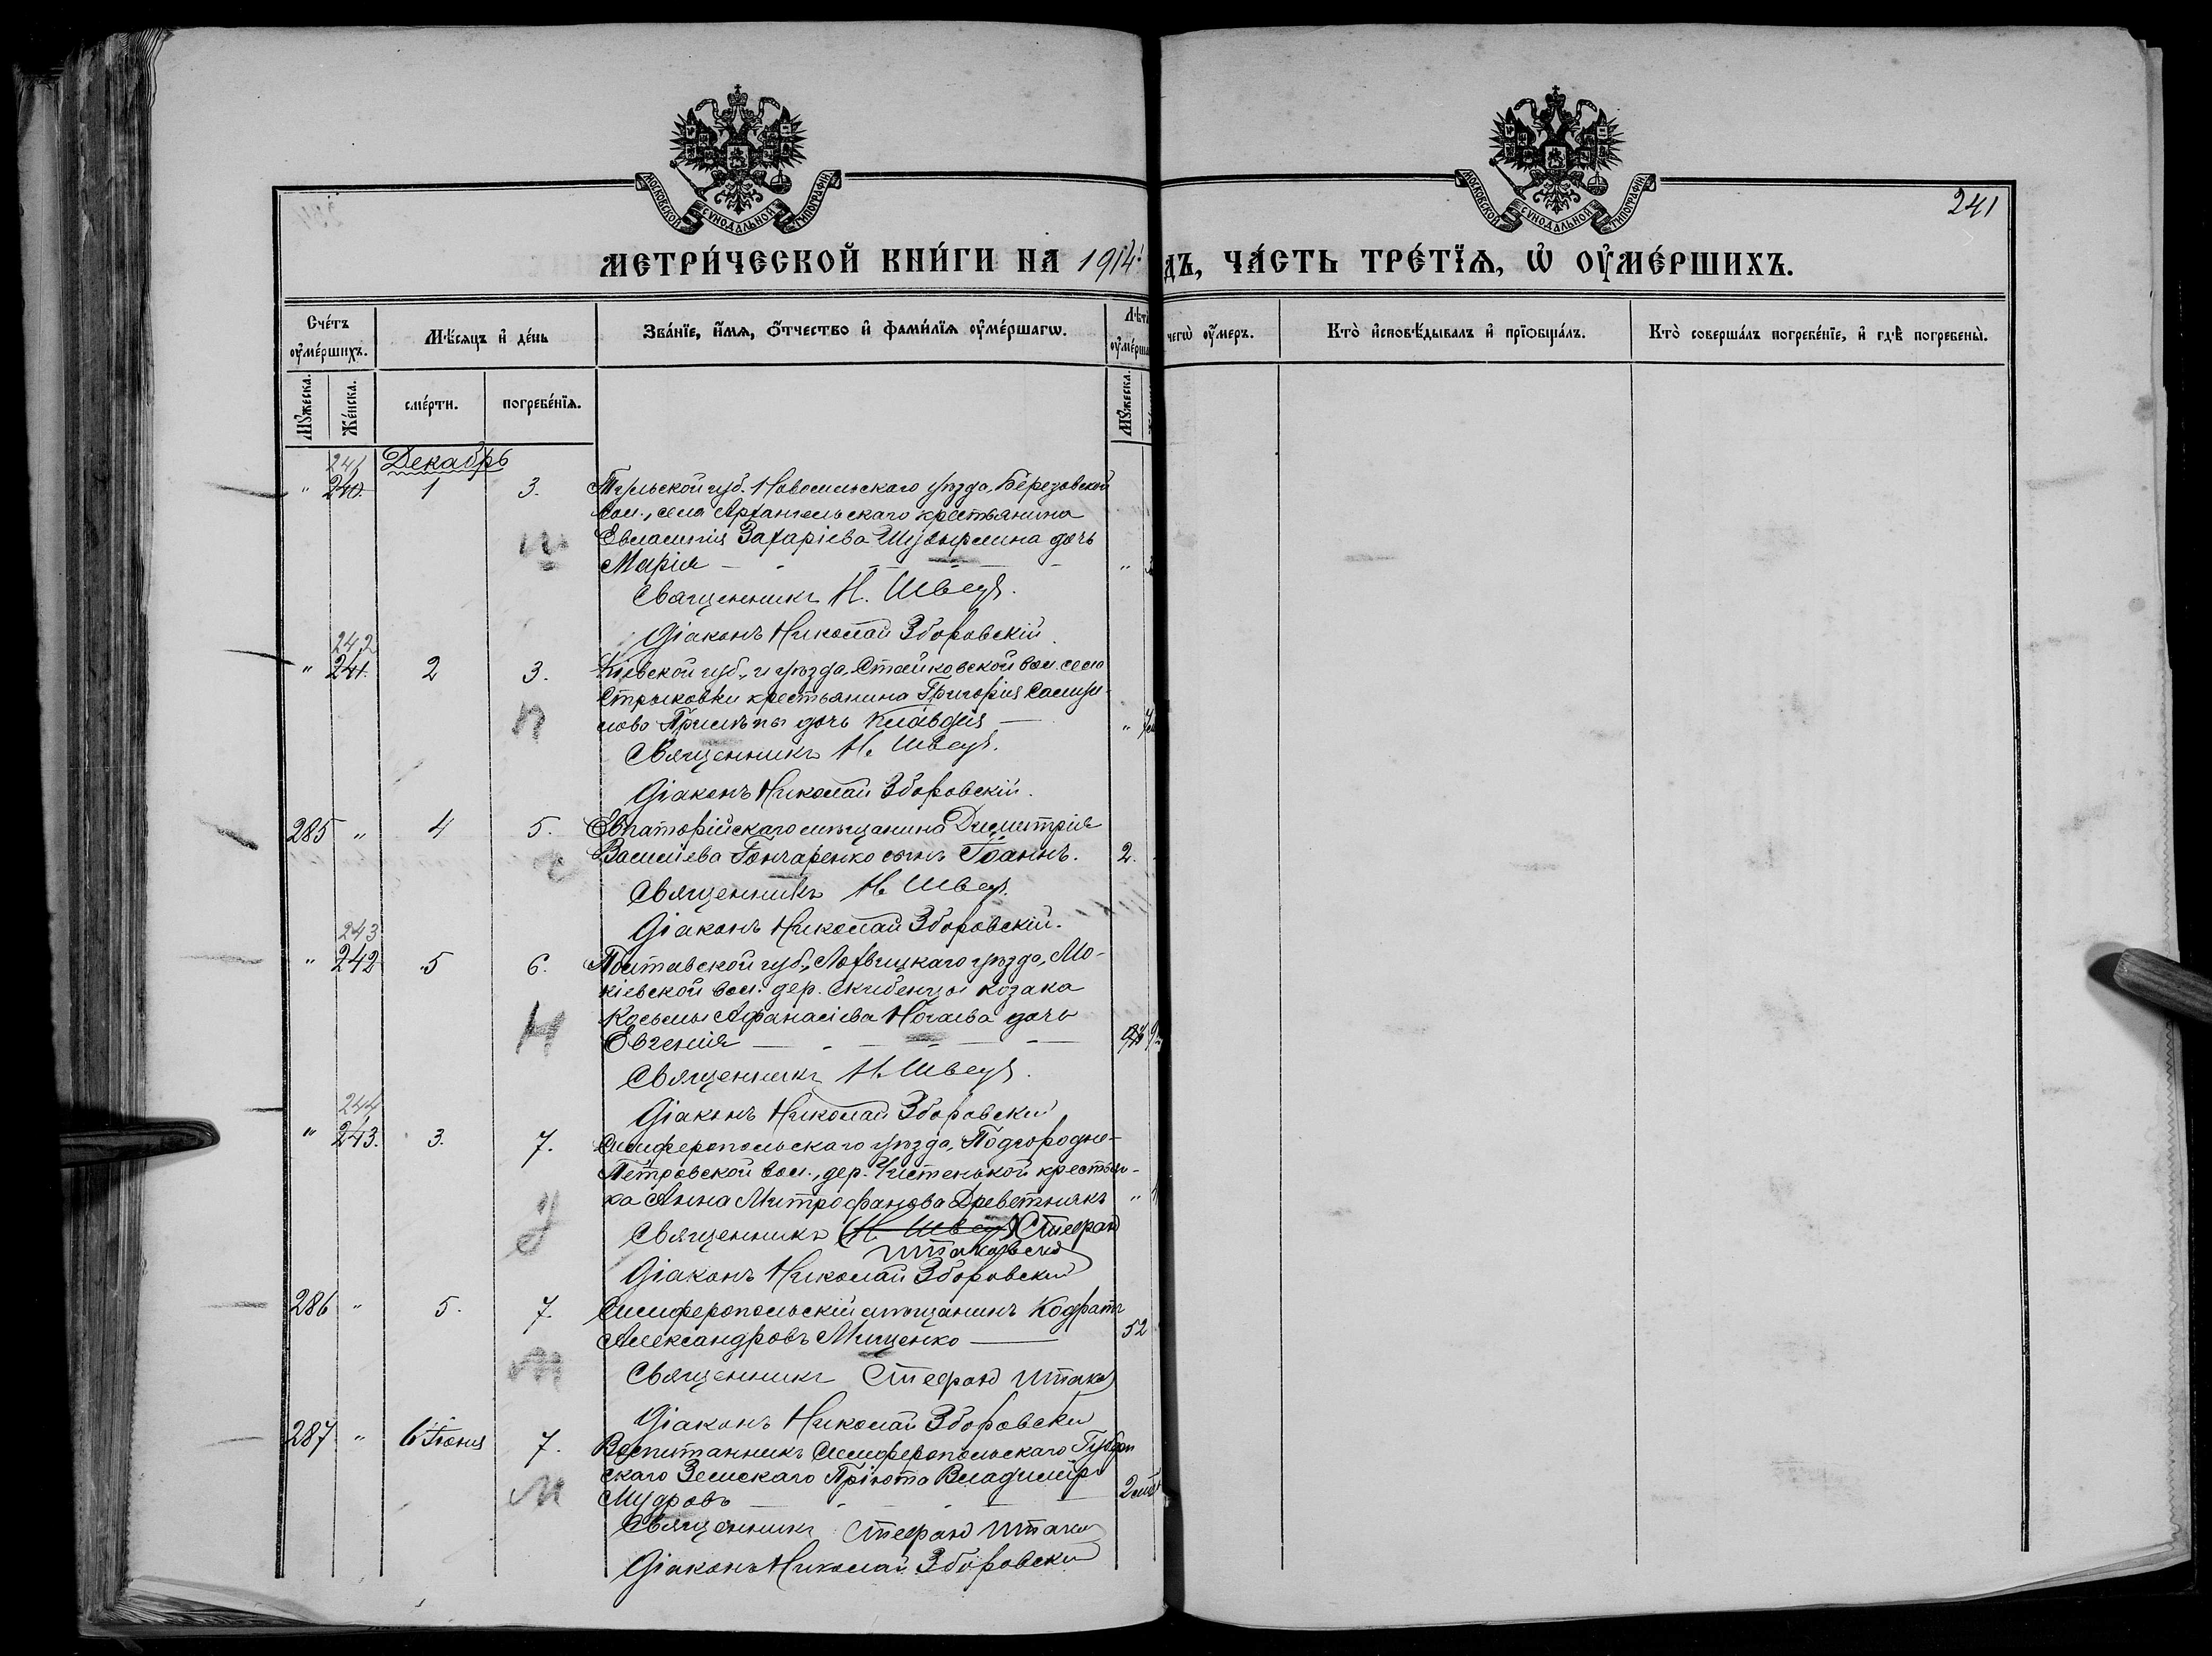 МОСКОВСКОЙ СУНОДАЛЬНОЙ ТИПОГРАФІИ
МОСКОВСКОЙ СУНОДАЛЬНОЙ ТИПОГРАФІИ
241
МЕТРИ́ЧЕСКОЙ КНИ́ГИ НА 1914
ДЪ, ЧА́СТЬ ТРЕ́ТЇѦ, Ѡ ОУ҆МЕ́РШИХЪ.
Сче́тъ оу҆ме́ршихъ.
Мѣ́сяцъ и҆ де́нь
Зва́нїе, и҆́мѧ, ѻ҆́тчество и҆ фами́лїѧ оу҆ме́ршагѡ.
Лѣт
оу҆ме́рш
чегѡ̀ оу҆́меръ.
Кто̀ и҆сповѣ́дывалъ и҆ прїѻбща́лъ.
Кто̀ соверша́лъ погребе́нїе, и҆ гдѣ̀ погребены̀.
Мꙋ́жеска.
Же́нска.
сме́рти.
погребе́нїѧ.
Мꙋ́жеска.
Декабрь
241
" 240. 1 3. Тульской губ. Новосильскаго уѣзда, Березовской
вол., села Архангельскаго крестьянина
Захаріева дочь
Марія "
Священникъ Н. Швецъ.
Діаконъ Николай Зборовскій.
242
" 241. 2 3. Кіевской губ., и уѣзда, Стайковской вол. села
Стрыковки крестьянина Григорія Самуи-
лова дочь Клавдія "
п
Священникъ Н. Швецъ.
Діаконъ Николай Зборовскій.
285 " 4 5. Евпаторійскаго мѣщанина Димитрія
Васильева Гончаренко сынъ Іоаннъ. 2.
Священникъ Н. Швец.
Діаконъ Николай Зборовскій.
243
" 242 5 6. Полтавской губ., Лохвицкаго уѣзда, Мо-
кіевской вол. дер. Скибенцы козака
Косьмы Афанасіева Ногаева дочь
Н
Евгенія
Священникъ Н. Швецъ.
Діаконъ Николай Зборовскій
244
" 243. 3. 7. Симферопольскаго уѣзда, Подгородне-
Петровской вол., дер. Чистенькой крестьян-
ка Анна Митрофанова "
Священникъ (Н. Швецъ) Стефан
Діаконъ Николай Зборовский
286 " 5. 7. Симферопольскій мѣщанинъ Кодратъ
Александровъ Мищенко 52
Священникъ Стефан
Діаконъ Николай Зборовски
287 " 6 Іюня 7. Воспитанникъ Симферопольскаго Губерн
скаго Земскаго Пріюта Владиміръ
М
Мудровъ 2
Священникъ Стефан
Діаконъ Николай Зборовски